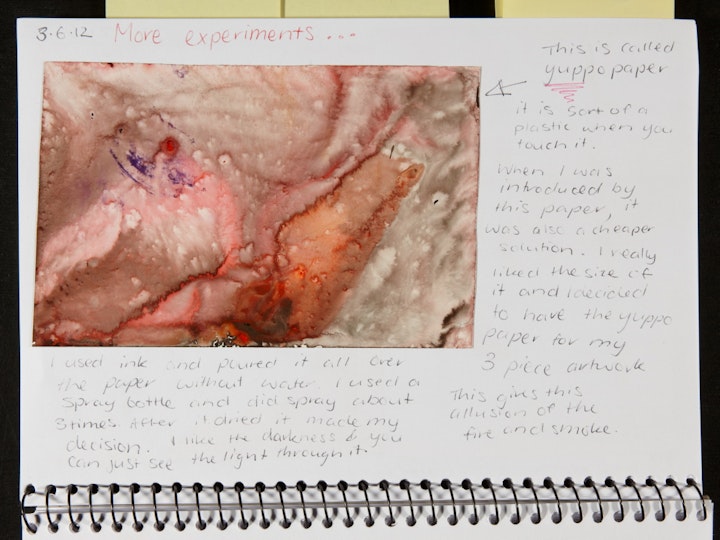 3.6.12 More experiments...
This is called
yuppo paper
it is sort of a
plastic when you
touch it.
When I was
introduced by
this paper, it
was also a cheaper
solution. I really
liked the size of
it and I decided
to have the yuppo
paper for my
3 piece artwork
This gives this
allusion of the
fire and smoke.
I used ink and poured it all over
the paper without water. I used a
spray bottle and did spray about
3 times. After it dried it made my
decision. I like the darkness & you
can just see the light through it.